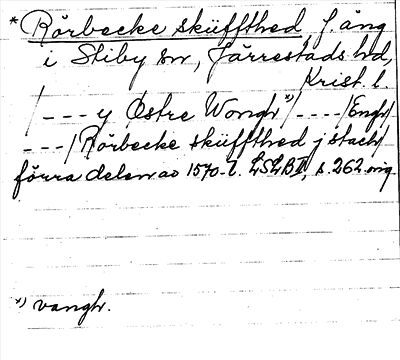 * Rörbecke skiüffthed, f. äng
i Stiby sn, Järrestads hd,
Krist. l.
/ - - - y Østre Wongh *)/ - - - - /Engh/
- - - / Rörbecke skiüffthed j stach/
förra delen av 1570-t. LSLB II, s. 262 orig.
*) vangh.